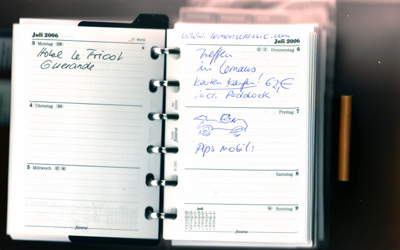 Juli 2006
3 Montag
Hotel Le Tricot
Guerande
4 Dienstag
5 Mittwoch
filofax
www.lemansclassic.com
Juli 2006
Donnerstag 6
Treffen
in Lemans
Karten kaufen! 62,-€
incl. Paddock
Freitag 7
Alps mobil:
Samstag 8
Juli
Sonntag 9
filofax